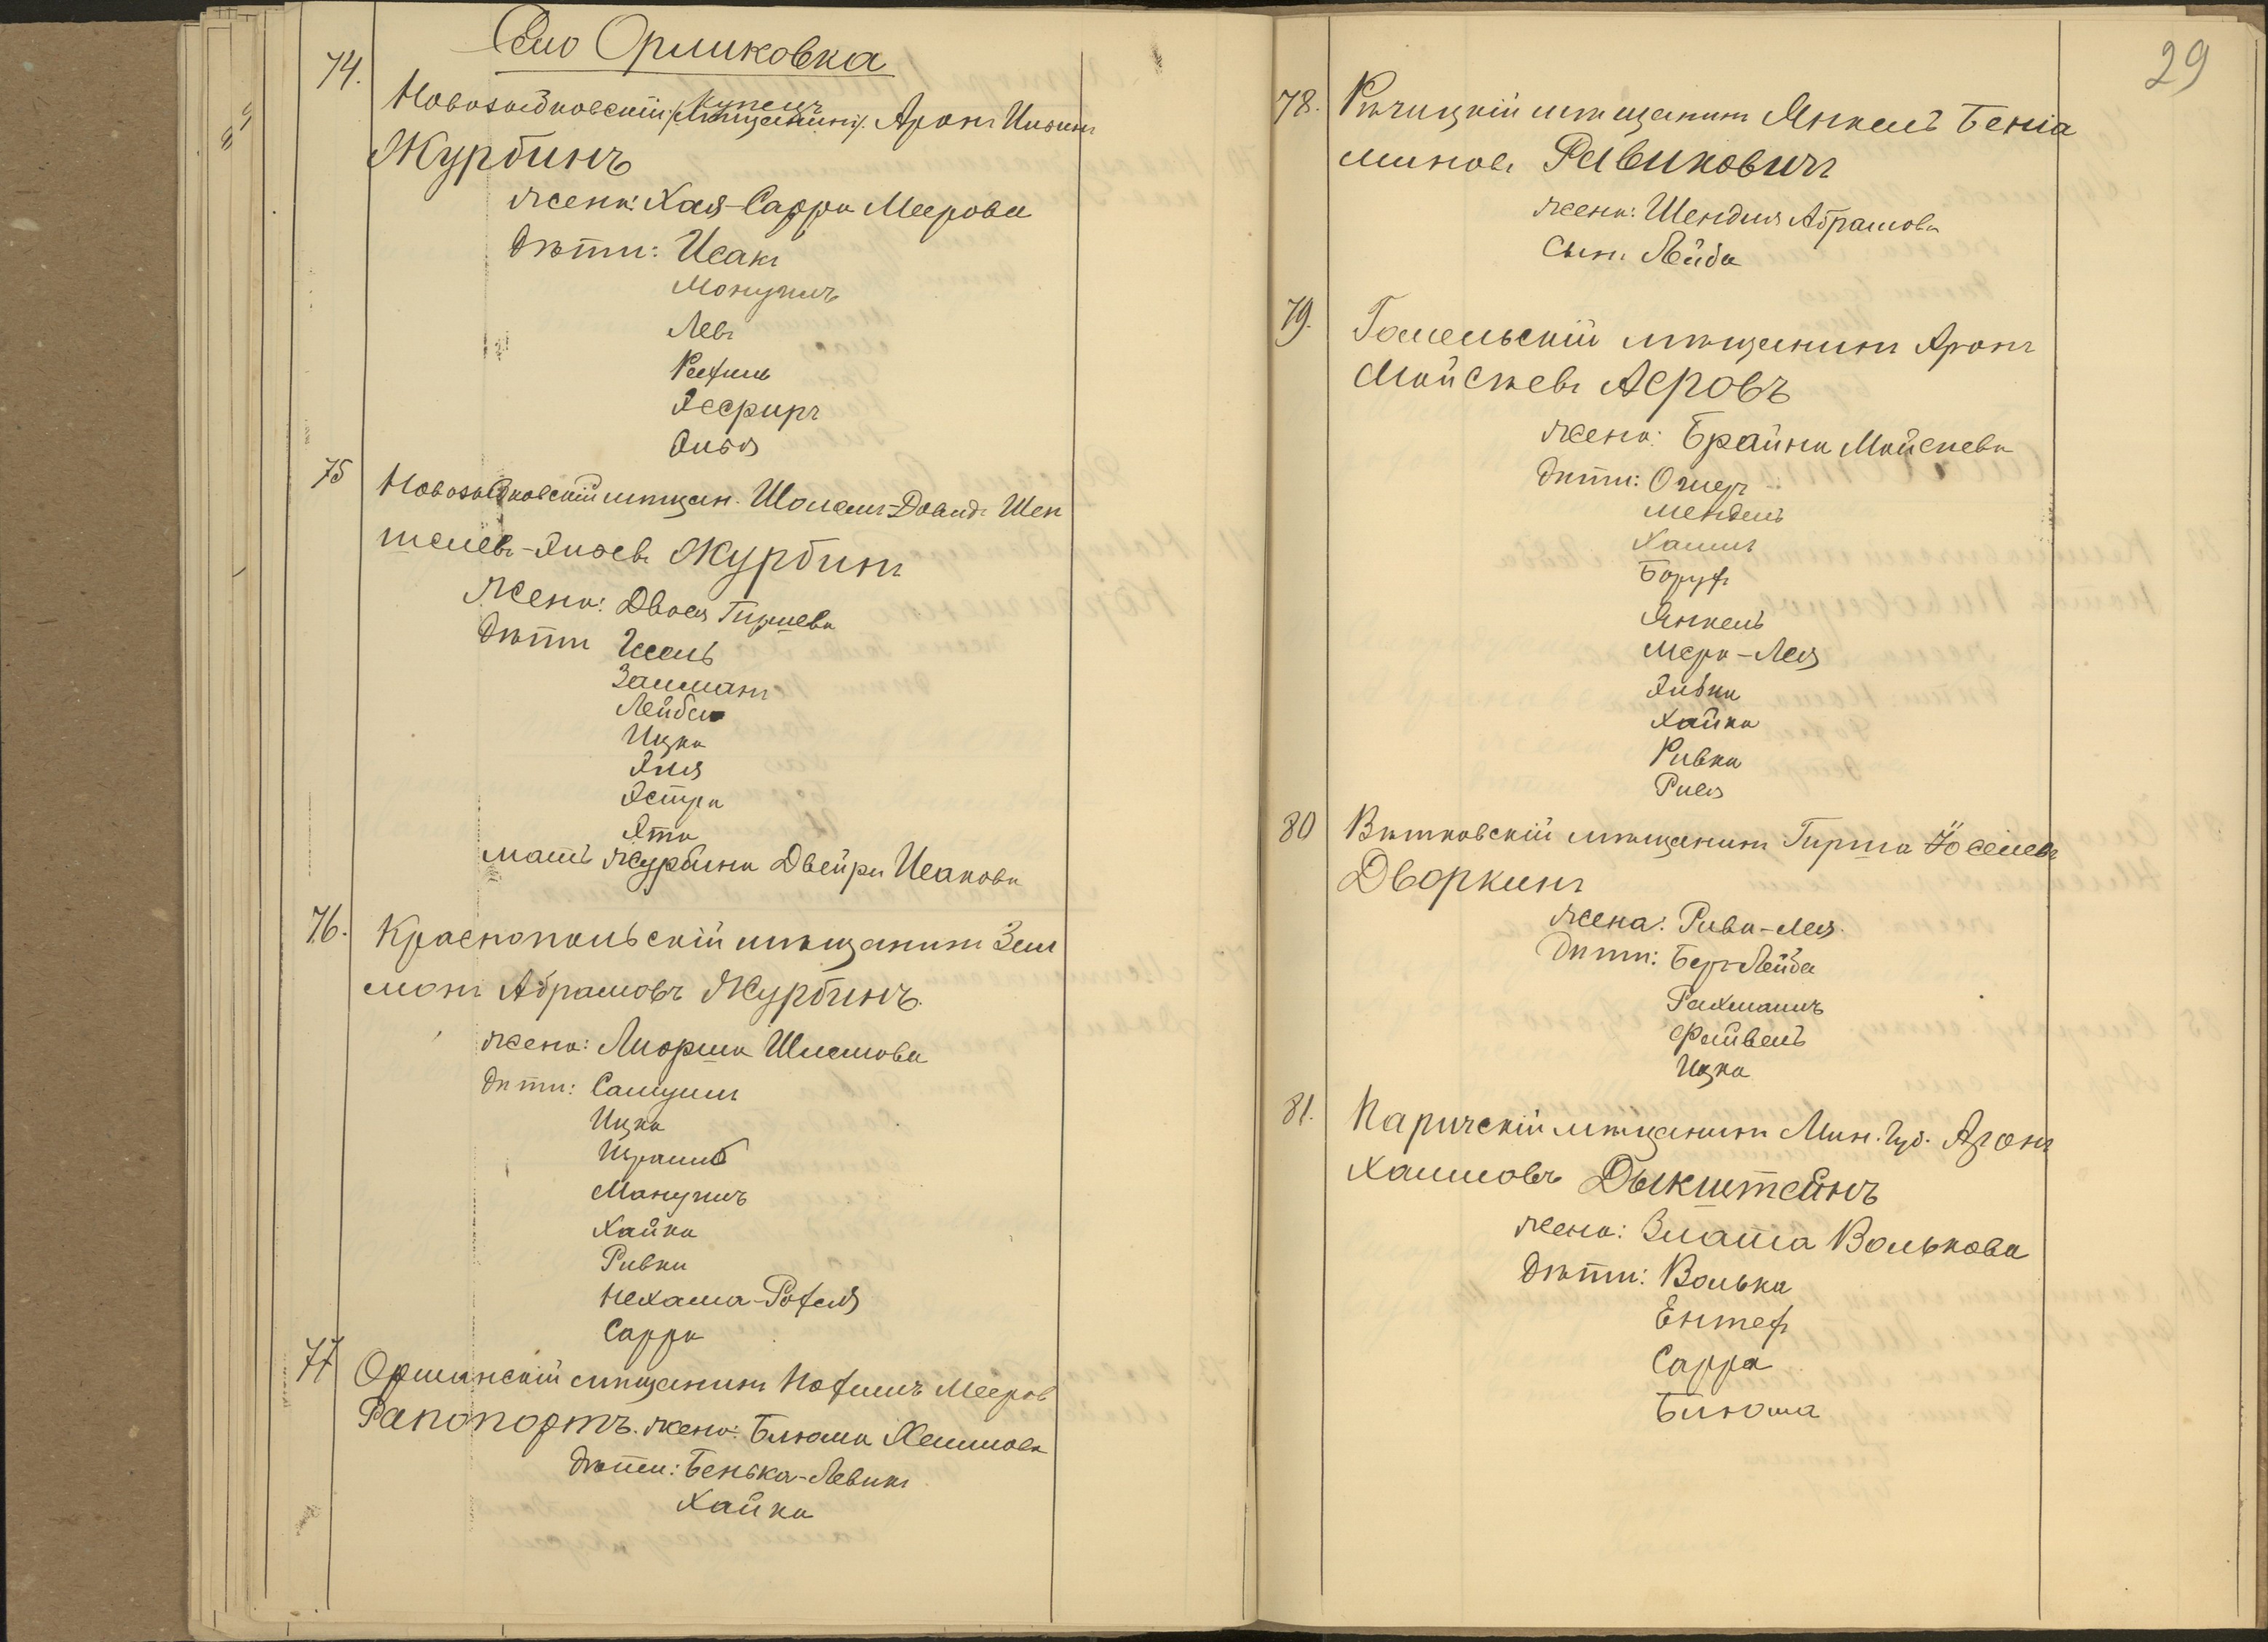 Село Орликовка
74.
Новозыбковскій /Купецъ
Мѣщанинъ/. Аронъ
Журбинъ
жена: Хая-Сарра Меерова
Дѣти: Исакъ
Монуилъ
Левъ
Рафиль
Эсфирь
75
Новозыбковскій мѣщан. Шолемъ-Довидъ Шен
Журбинъ
Жена: Двося Гиршева
Дѣти
Залманъ
Лейба
Ицка
Эля
Эстра
Эта
мать Журбина Двейра Исакова
76.
Краснопольскій мѣщанинъ Зел
монъ Абрамовъ Журбинъ.
жена: Шлемова
Дѣти: Самуилъ
Ицка
Израиль
Мануилъ
Хайка
Ривка
Нехама-Рохля
Сарра
77
Оршанскій мѣщанинъ Нохимъ Мееров
Рапопортъ. жена: Блюма Хаимова
Дѣти: Бенька-Левикъ
Хайка
29
78.
Рѣчицкій мѣщанинъ Янкель Беніа
миновъ Равиковичъ
жена: Шендля Абрамова
Сынъ Лейба
79.
Гомельскій мѣщанинъ Аронъ
Мойсѣевъ Аеровъ
жена: Брайна Мойсѣева
Дѣти: Ошеръ
Мендель
Хаимъ
Борухъ
Янкель
Мера-Лея
Либка
Хайка
Ривка
Рися
80
Вѣтковскій мѣщанинъ Гирша Іоселевъ
Дворкинъ
жена: Рива-Лея.
Дѣти: Беръ-Лейба
Рахмаилъ
Файвель
Ицка
81.
Паричскій мѣщанинъ Мин. Губ. Аронъ
Хаимовъ Дыкштейнъ
жена: Злата Волькова
Дѣти: Волька
Сарра
Блюма